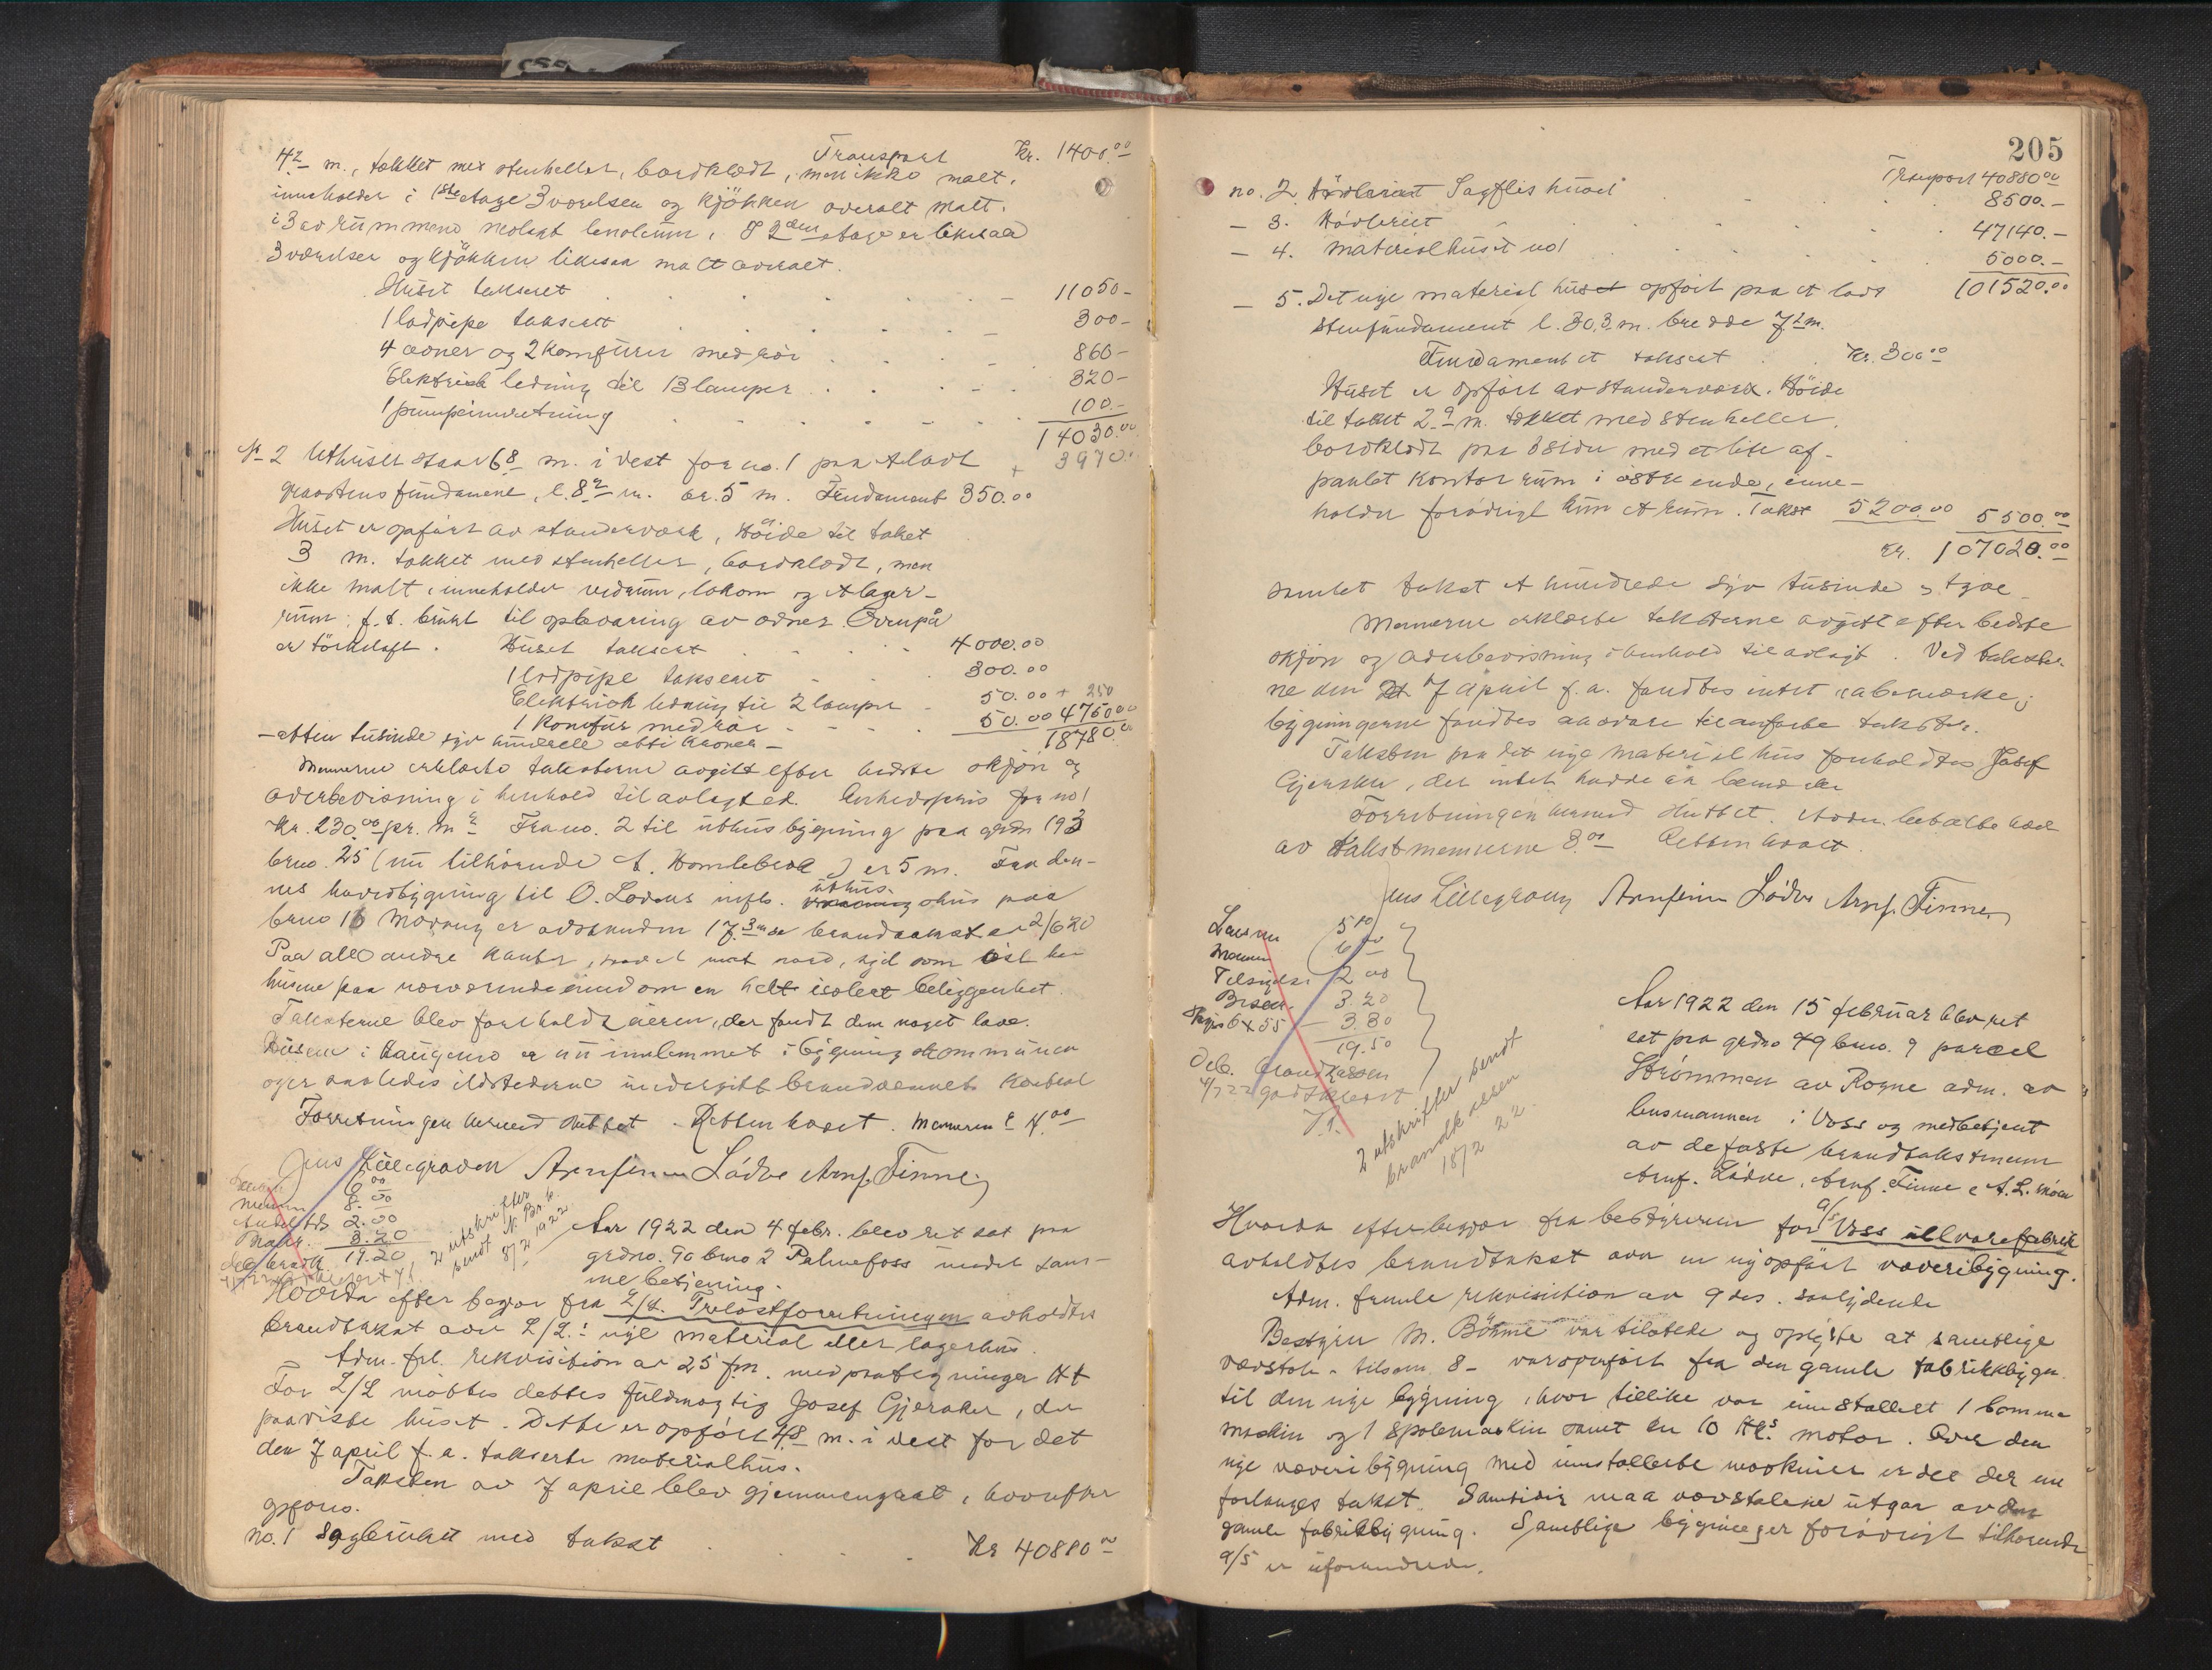 Transport Kr. 1400.00
4.2 m., tækket mex stenheller, bordklædt, men ikke malt,
inneholder i 1ste etage 3 værelser og kjökken overalt malt.
i 3 av rummene nedlagt linoleum. I 2den etage er likesaa
3 værelser og kjökken likesaa malt overalt.
Huset taksert 11050-
1 lodpipe taksert 300-
4 ovner og 2 komfurer med rör 860-
Elektrisk ledning til 13 lamper 320-
1 pumpeinnretning 100.-
14030.00
+ 3970.
No 2 Uthuset staar 6.8 m. i vest for no. 1 paa et lavt
graastens fundament, l. 8.2 m. br. 5 m. Fundament 350.00
Huset er opfört av stenderverk, Höide til taket
3 m. tækket med stenheller, bordklædt, men
ikke malt, inneholder vedrum, lokom og et lager-
rum, f.t. brukt til opbevaring av ovner. Ovenpå
er törkeloft. Huset taksert 4000.00
1 lodpipe taksert 300.00
Elektrisk ledning til 2 lamper 50.00 + 250
1 Komfur med rör 50.00 4750.00
- atten tusinde syv hundrede otti kroner - 18780.00
Mennerne erklærte taksterne avgitt efter bedste skjön og
overbevisning i henhold til avlagt ed. Enhedspris for no 1
kr. 230.00 pr. m2 Fra no. 2 til uthusbygning paa grdn 193
brno. 25 (nu tilhörende A. Homlebrek) er 5 m. Fra den-
nes hovedbygning til O. Lodens uthus paa
brno 16 er avstanden 17.3 m
Paa alle andre kanter, mot nord, syd som öst har
husene paa nærværende eiendom en helt isoleret beliggenhet.
Taksterne blev foreholdt eieren, der fandt dem noget lave.
Husene i Haugamo er nu innlemmet i bygningskommunen
og er saaledes ildstederne undergitt brandvæsenets kontrol
Forretningen hermed sluttet. Retten hævet. Mennerne á 4.00
Jens Lillegraven Arnfinn Lödve Arnf. Finne
6.00
Mennene 8.00
2.00
3.20
19.20
2 utskrifter
sendt N. Br. k.
8/2 1922
Aar 1922 den 4 febr. blev ret sat paa
grdno. 90 brno 2 Palmefoss under sam-
me betjening.
Hvorda efter begjær fra L/L. Trelastforretningen avholdtes
brandtakst over L/L.s nye material eller lagerhus.
Adm. frl. rekvisition av 25 f.m. med paategninger
For L/L möttes dettes fuldmægtig Josef Gjeraker, der
paaviste huset. Dette er opfört 4.8 m. i vest for det
den 7 april f.a. takserte materialhus.
Taksten av 7 april blev gjennemgaat, hvorefter
opføres.
no. 1 Sagbruket med takst Kr 40880.00
205
Transport 40880.00
no. 2. Sagflis huset 8500.-
- 3. Hövleriet 47140.-
- 4. Materialhuset no 1 5000.-
101520.00
- 5. Det nye material huset opfört paa et lavt
stenfundament l. 30,3 m. bredde 7.2 m.
Fundamentet taksert Kr. 300.00
Huset er opfört av stenderverk. Höide
til taket 2.9 m. tækket med stenheller,
bordklædt paa 3 sider med et lite af-
panlet kontorrum i östre ende, inne-
holder forövrigt kun et rum. Takst 5200.00 5500.00
Kr. 107020.00
samlet takst et hundrede syv tusinde og tyve
Mennerne erklærte taksterne avgitt efter bedste
skjön og overbevisning i henhold til avlagt . Ved takster-
ne den 7 April f.a. fandtes intet at bemerke;
bygningerne fandtes at svare til anførte takster.
Taksten paa det nye materialhus foreholdtes Josef
Gjeraker, der intet hadde at bemerke
Forretningen hermed sluttet. Retten hævet.
av takstmennerne 3.00
Jens Lillegraven Arnfinn Lödve Arnf. Finne
Lensm 5.00
Menner 6.00
Tilsyn 2.00
3.20
6 x 55 3.30
19.50
2 utskrifter sendt
brandkassen
18/2 22.
Aar 1922 den 15 februar blev ret
sat paa grdno 49 brno. 9 parcel
Strömmen av Rogne adm. av
lensmannen i Voss og medbetjent
av de faste brandtakstmenn
Arnf. Lödve, Arnf. Finne & A. L. Möen
Hvorda efter begjær fra bestyreren for A/S Voss ullvarefabrik
avholdtes brandtakst over en nyopfört væveribygning.
Adm. fremla rekvisition av 9 ds. saalydende
Bestyrer M. Böhme var tilstede og oplyste at samtlige
vævstole - tilsam. 8 - var overfört fra den gamle fabrikkbygn.
til den nye bygning, hvor tillike var innstalleret 1 bomme
maskin og 1 spolemaskin samt en 10 Hk.s motor. Over den
nye væveribygning med innstallerte maskiner er det der nu
forlanges takst. Samtidig maa vævstolene utgaa av den
gamle fabrikbygning. Samtlige bygninger forövrigt tilhörende
A/S er uforandrede.